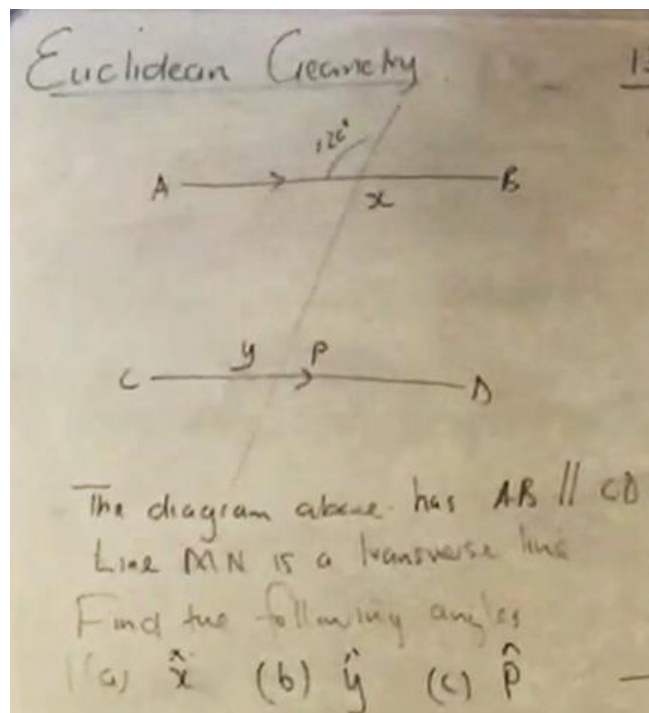 Euclidean Geometry
120°
A B
x
y P
C D
The diagram above has AB // CD
Line MN is a transverse line
Find the following angles
(a) x̂ (b) ŷ (c) p̂